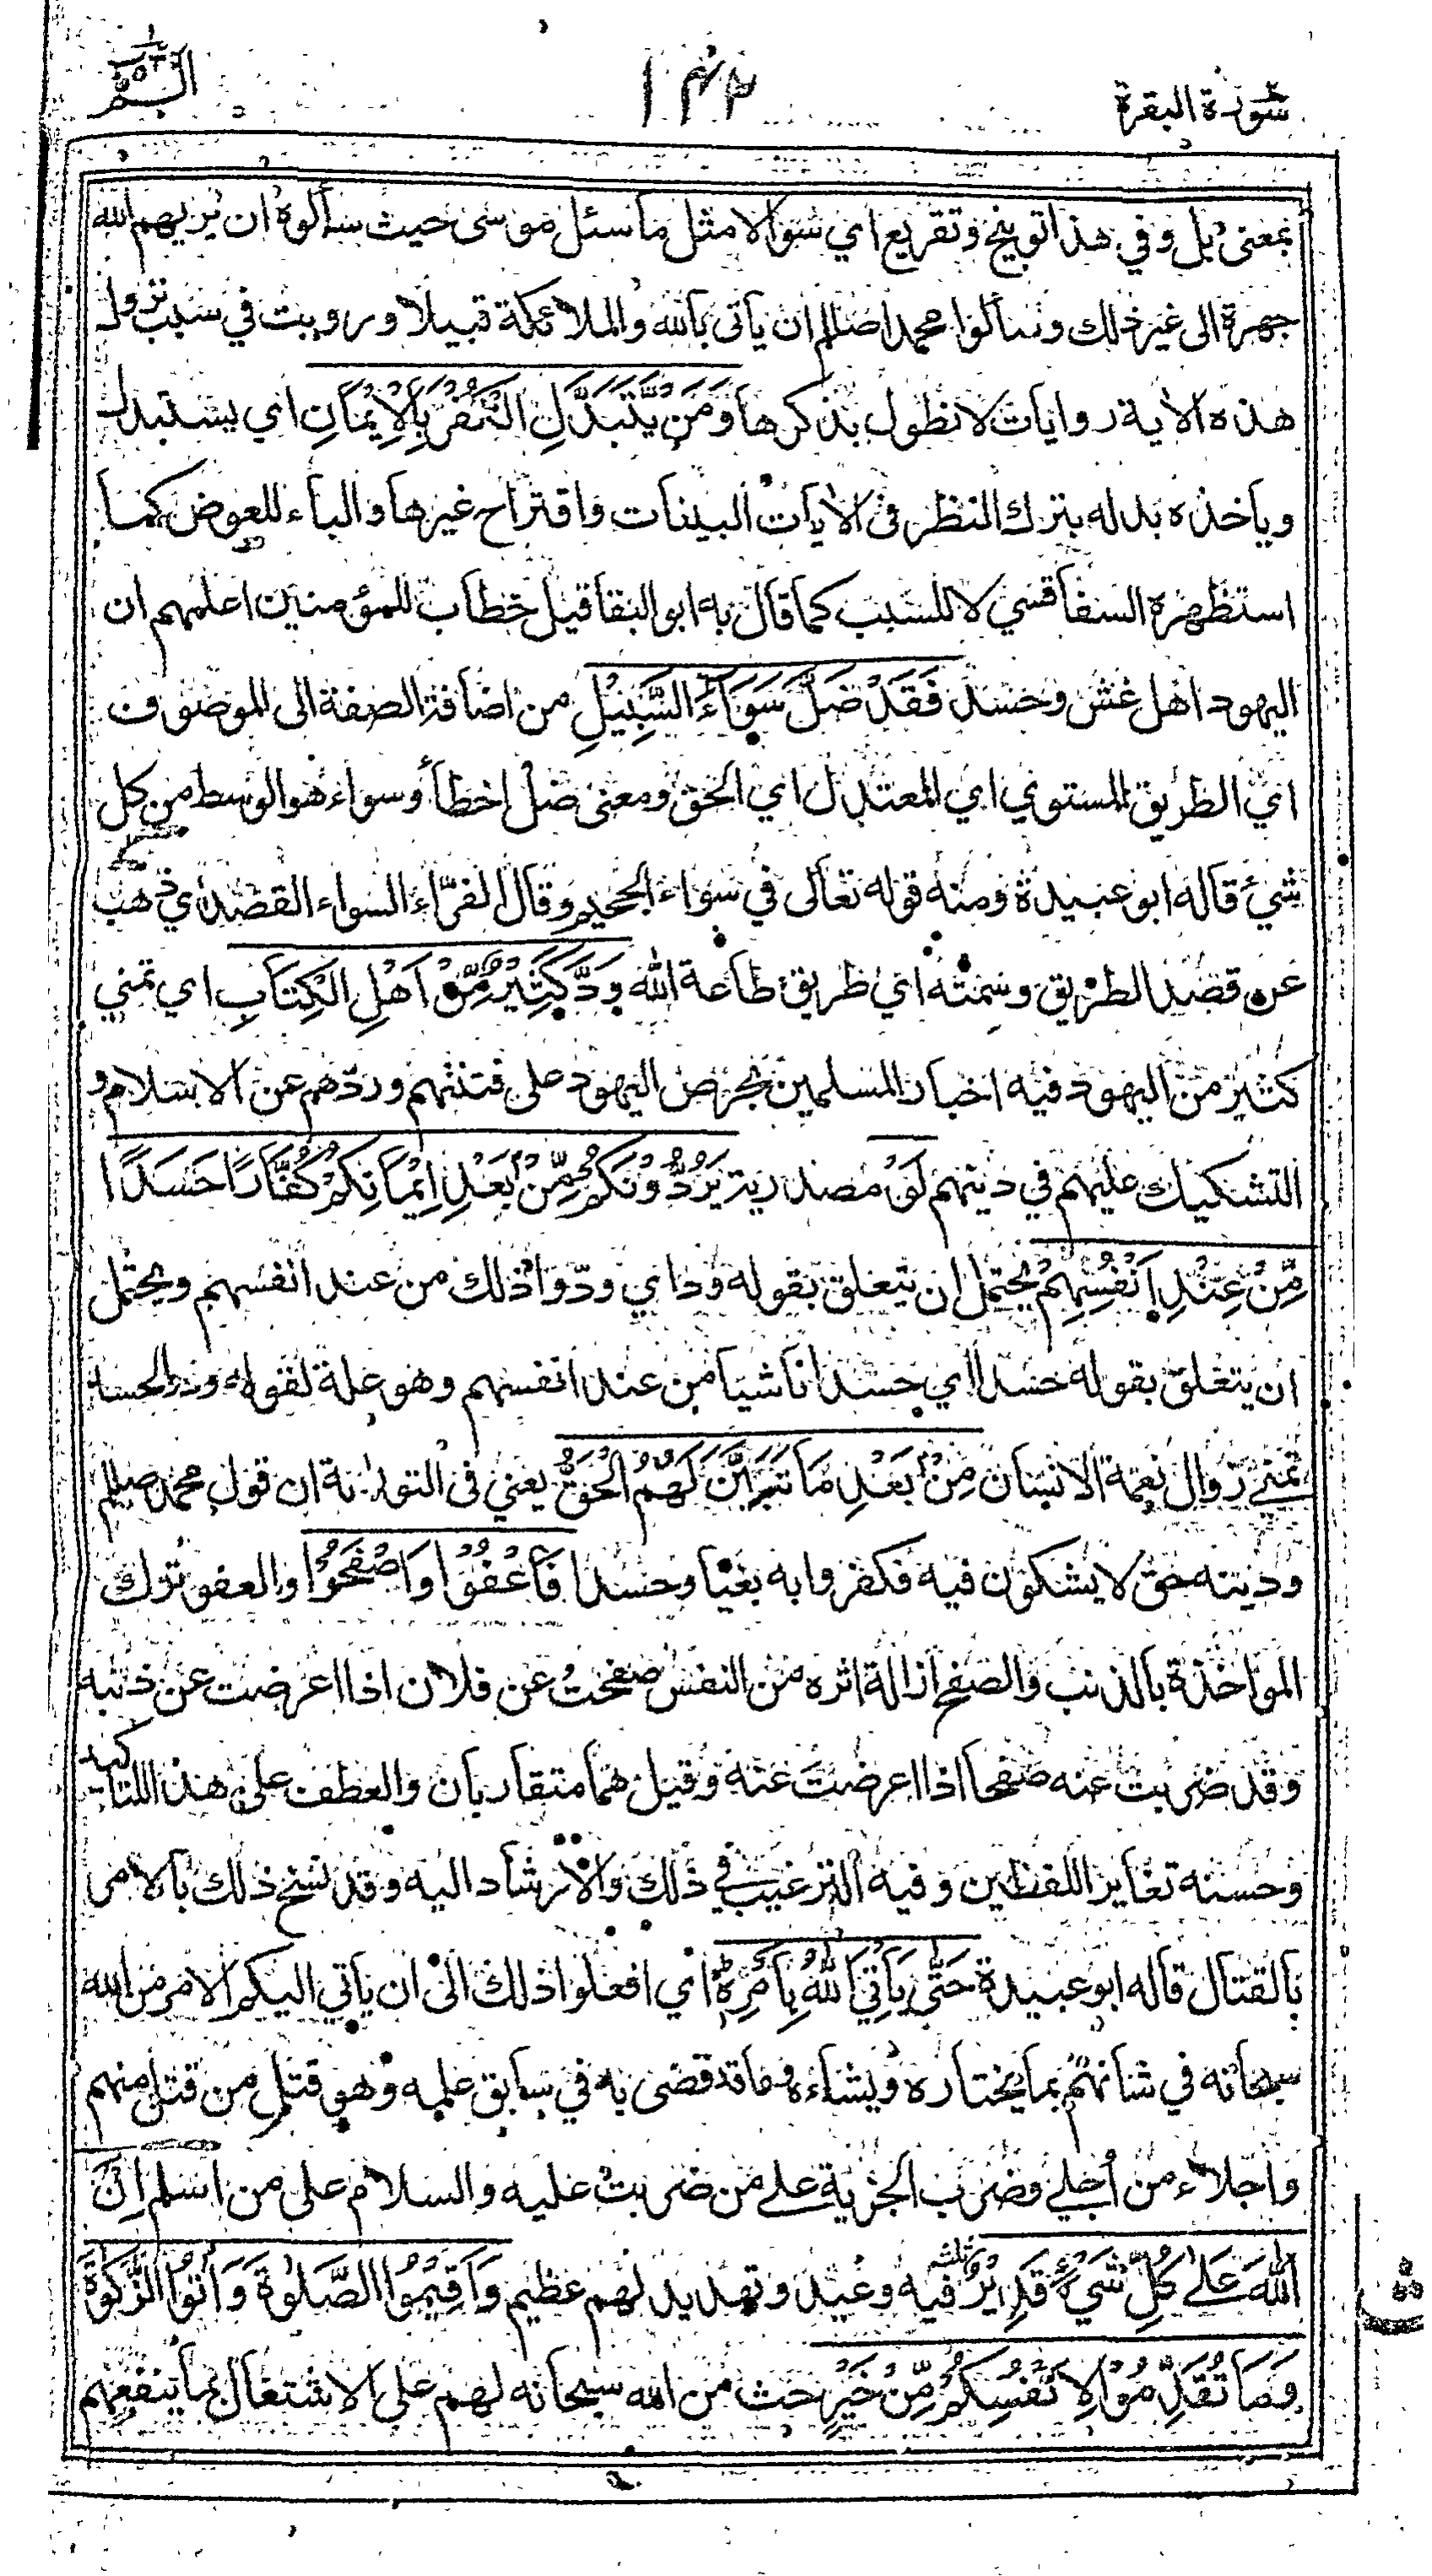 سورة البقرة ١٤٢ الٓمٓ
بمعنى بل وفي هذا توبيخ وتقريع اي سؤالا مثل ما سئل موسى حيث سألوه ان يريهم الله
جهرة الى غير ذلك وسألوا محمدا صللم ان يأتى بالله والملائكة قبيلا ورويت في سبب نزول
هذه الاية روايات لا نطول بذكرها وَمَنْ يَّتَبَدَّلِ الْكُفْرَ بِالْاِيْمَانِ اي يستبدل
ويأخذه بدله بترك النظر فى الايات البينات واقتراح غيرها والباء للعوض كما
استظهره السفاقسي لا للسبب كما قال به ابو البقا قيل خطاب للمؤمنين اعلمهم ان
اليهود اهل غش وحسد فَقَدْ ضَلَّ سَوَآءَ السَّبِيْلِ من اضافة الصفة الى الموصوف
اي الطريق المستوي اي المعتدل اي الحق ومعنى ضل اخطأ وسواء هو الوسط من كل
شيء قاله ابو عبيدة ومنه قوله تعالى في سواء الجحيم وقال الفرّاء السواء القصد اي ذهب
عن قصد الطريق وسمته اي طريق طاعة الله وَدَّ كَثِيْرٌ مِّنْ اَهْلِ الْكِتَابِ اي تمنى
كثير من اليهود فيه اخبار المسلمين بحرص اليهود على فتنتهم وردّهم عن الاسلام و
التشكيك عليهم في دينهم لَوْ مصدرية يَرُدُّوْنَكُمْ مِّنْ بَعْدِ اِيْمَانِكُمْ كُفَّارًا حَسَدًا
مِّنْ عِنْدِ اَنْفُسِهِمْ يحتمل ان يتعلق بقوله ود اي ودّوا ذلك من عند انفسهم ويحتمل
ان يتعلق بقوله حسدا اي حسدا ناشيا من عند انفسهم وهو علة لقوله ود والحسد
تمنے زوال نعمة الانسان مِنْ بَعْدِ مَا تَبَيَّنَ لَهُمُ الْحَقُّ يعني فى التورىة ان قول محمد صللم
ودينه حق لا يشكون فيه فكفروا به بغيا وحسدا فَاعْفُوْا وَاصْفَحُوْا والعفو ترك
المواخذة بالذنب والصفح ازالة اثره من النفس صفحت عن فلان اذا اعرضت عن ذنبه
وقد ضربت عنه صفحا اذا اعرضت عنه وقيل هما متقاربان والعطف على هذا للتاكيد
وحسنه تغاير اللفظين وفيه الترغيب في ذلك والارشاد اليه وقد نسخ ذلك بالامر
بالقتال قاله ابو عبيدة حَتّٰى يَأْتِيَ اللّٰهُ بِاَمْرِهٖ اي افعلوا ذلك الى ان يأتي اليكم الامر من الله
سبحانه في شأنهم بما يختاره ويشاءه وما قد قضى به في سابق علمه وهو قتل من قتل منهم
واجلاء من أُجلي وضرب الجزية علے من ضربت عليه والسلام على من اسلم اِنَّ
اللّٰهَ عَلٰے كُلِّ شَيْءٍ قَدِيْرٌ فيه وعيد وتهديد لهم عظيم وَاَقِيْمُوا الصَّلٰوةَ وَاٰتُوا الزَّكٰوةَ
وَمَا تُقَدِّمُوْا لِاَنْفُسِكُمْ مِّنْ خَيْرٍ حث من الله سبحانه لهم على الاشتغال بما ينفعهم